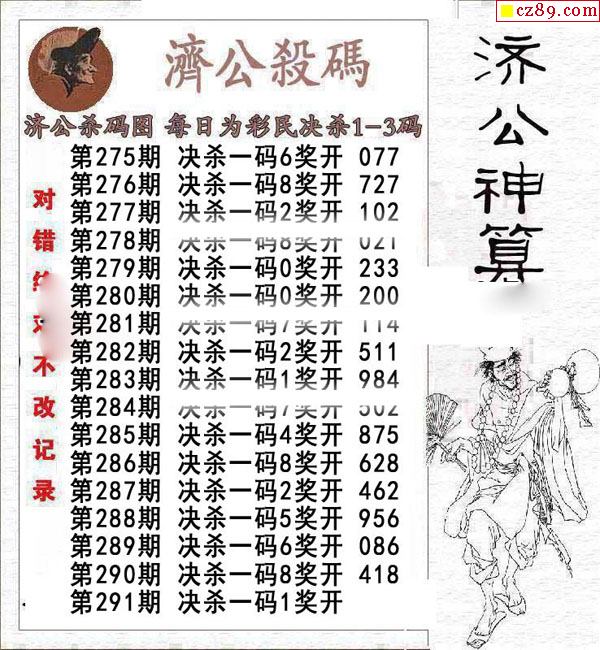 cz89.com
濟公殺碼
济公杀码图 每日为彩民决杀1-3码
第275期 决杀一码6奖开 077
第276期 决杀一码8奖开 727
第277期 决杀一码2奖开 102
第278期 决杀一码8奖开 021
第279期 决杀一码0奖开 233
第280期 决杀一码0奖开 200
第281期 决杀一码7奖开 114
第282期 决杀一码2奖开 511
第283期 决杀一码1奖开 984
第284期 决杀一码7奖开 502
第285期 决杀一码4奖开 875
第286期 决杀一码8奖开 628
第287期 决杀一码2奖开 462
第288期 决杀一码5奖开 956
第289期 决杀一码6奖开 086
第290期 决杀一码8奖开 418
第291期 决杀一码1奖开
对错 不改记录
济公神算